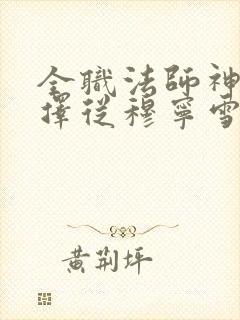 全職法師神
擇從穆寧雪
黃荊坪